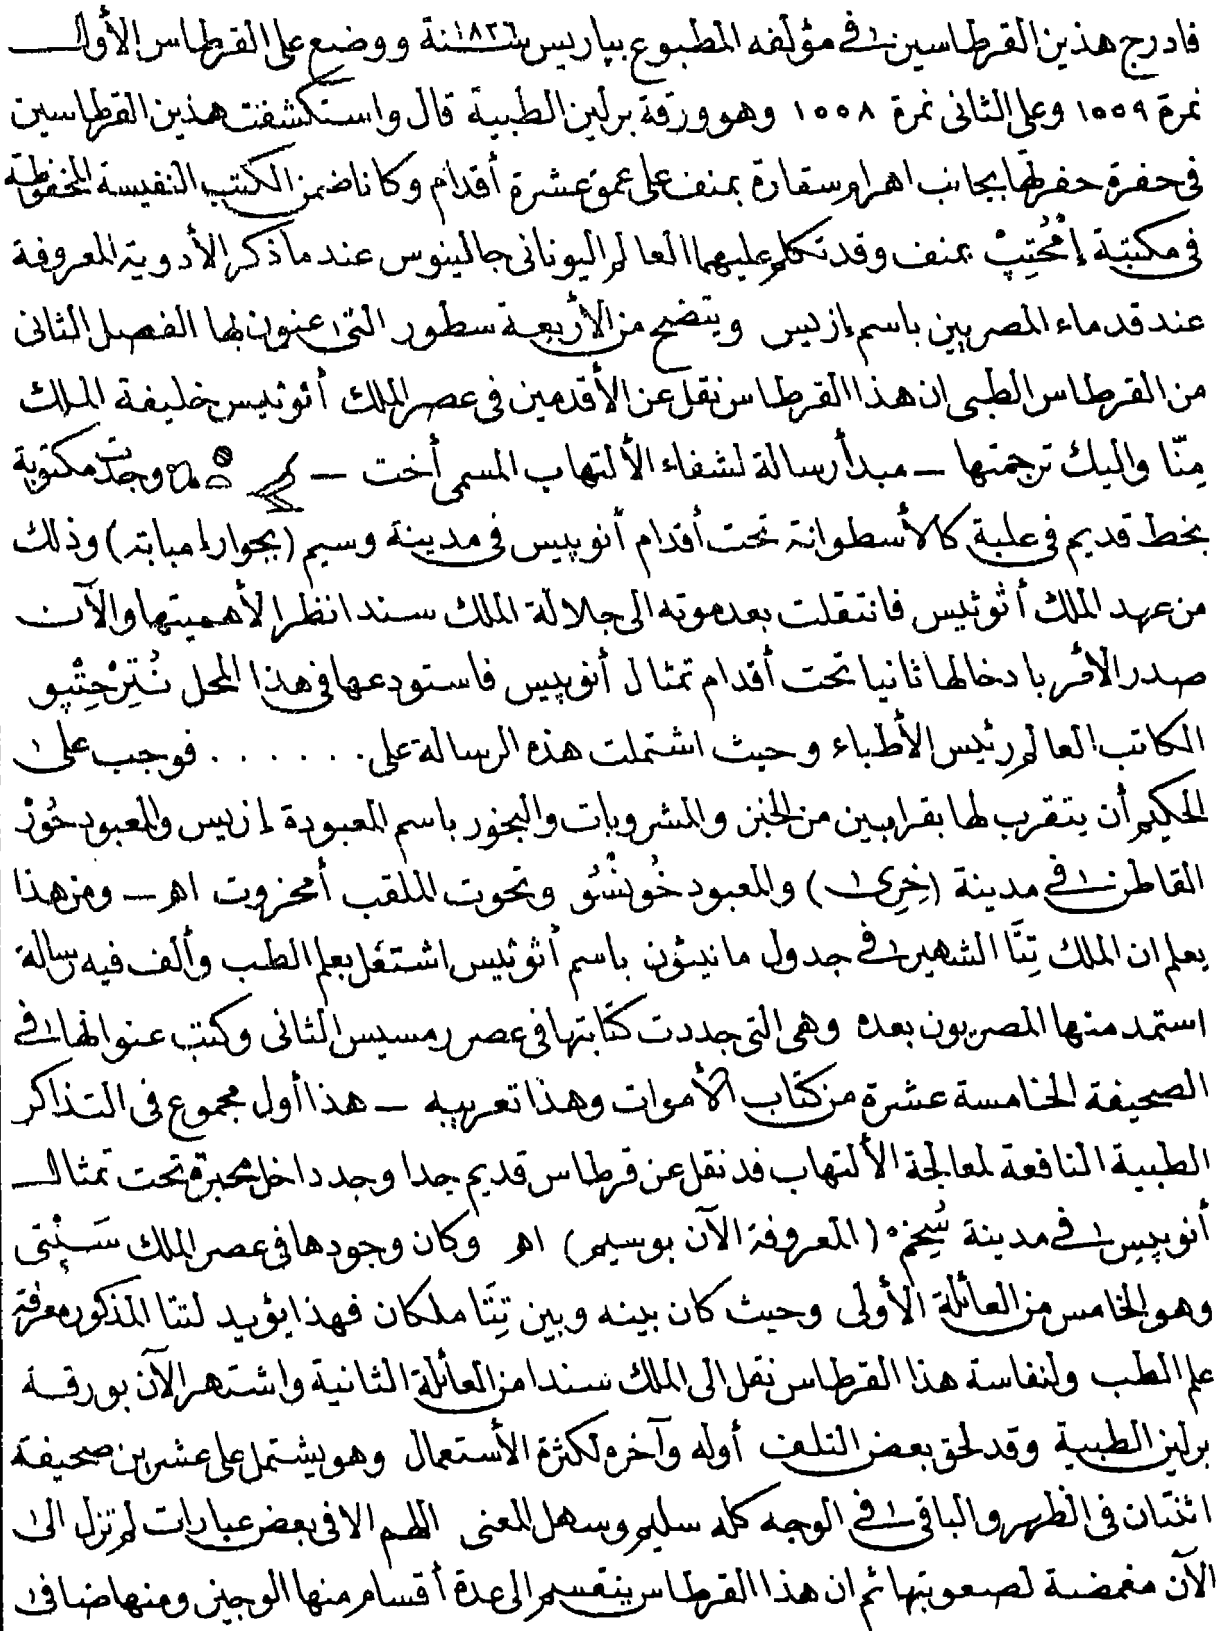 فادرج هذين القرطاسين في مؤلفه المطبوع بباريس سنة ١٨٢٦ ووضع على القرطاس الأول
نمرة ١٥٥٩ وعلى الثانى نمرة ١٥٥٨ وهو ورقة برلين الطبية قال واستكشفت هذين القرطاسين
فى حفرة حفرتها بجانب اهرام سقارة بمنف على عمق عشرة أقدام وكانا ضمن الكتب النفيسة المحفوظة
فى مكتبة إمْحُتِپْ بمنف وقد تكلم عليهما العالم اليونانى جالينوس عند ما ذكر الأدوية المعروفة
عند قدماء المصريين باسم إزيس ويتضح من الأربعة سطور التى عنون لها الفصل الثانى
من القرطاس الطبى ان هذا القرطاس نقل عن الأقدمين فى عصر الملك أثوثيس خليفة الملك
مِنّا واليك ترجمتها – مبدأ رسالة لشفاء الألتهاب المسمى أخت – وجدت مكتوبة
بخط قديم فى علبة كالأسطوانة تحت أقدام أنوبيس فى مدينة وسيم (بجوار إمبابته) وذلك
من عهد الملك أثوثيس فانتقلت بعد موته الى جلالة الملك سندا نظرا لأهميتها والآن
صدر الأمر بادخالها ثانيا تحت أقدام تمثال أنوبيس فاستودعها فى هذا المحل نُتِرْحِتْپو
الكاتب العالم رئيس الأطباء وحيث اشتملت هذه الرسالة على . . . . . . فوجب على
الحكيم أن يتقرب لها بقرابين من الخبز والمشروبات والبخور باسم المعبودة إزيس والمعبود حُوْرْ
القاطن في مدينة (خِرِى) والمعبود خُونْسُو وتحوت الملقب أمخزوت اه – ومن هذا
يعلم ان الملك تِتَّا الشهير في جدول مانيثون باسم أثوثيس اشتغل بعلم الطب وألف فيه رسالة
استمد منها المصريون بعده وهى التى جددت كتابتها فى عصر رمسيس الثانى وكتب عنوانها في
الصحيفة الخامسة عشرة من كتاب الأموات وهذا تعريبه – هذا أول مجموع فى التذاكر
الطبية النافعة لمعالجة الألتهاب قد نقل عن قرطاس قديم جدا وجد داخل محبرة تحت تمثال
أنوبيس في مدينة سُخِمْ (المعروفة الآن بوسيم) اه وكان وجودها فى عصر الملك سَپْتى
وهو الخامس من العائلة الأولى وحيث كان بينه وبين تِتَا ملكان فهذا يؤيد لتتا المذكور معرفة
علم الطب ولنفاسة هذا القرطاس نقل الى الملك سندا من العائلة الثانية واشتهر الآن بورقة
برلين الطبية وقد لحق بعض التلف أوله وآخره لكثرة الأستعمال وهو يشتمل على عشرين صحيفة
اثنتان فى الظهر والباقى في الوجه كله سليم وسهل المعنى اللهم الا فى بعض عبارات لم تزل الى
الآن مغمضة لصعوبتها ثم ان هذا القرطاس ينقسم الى عدة أقسام منها الوجيز ومنها ضافى